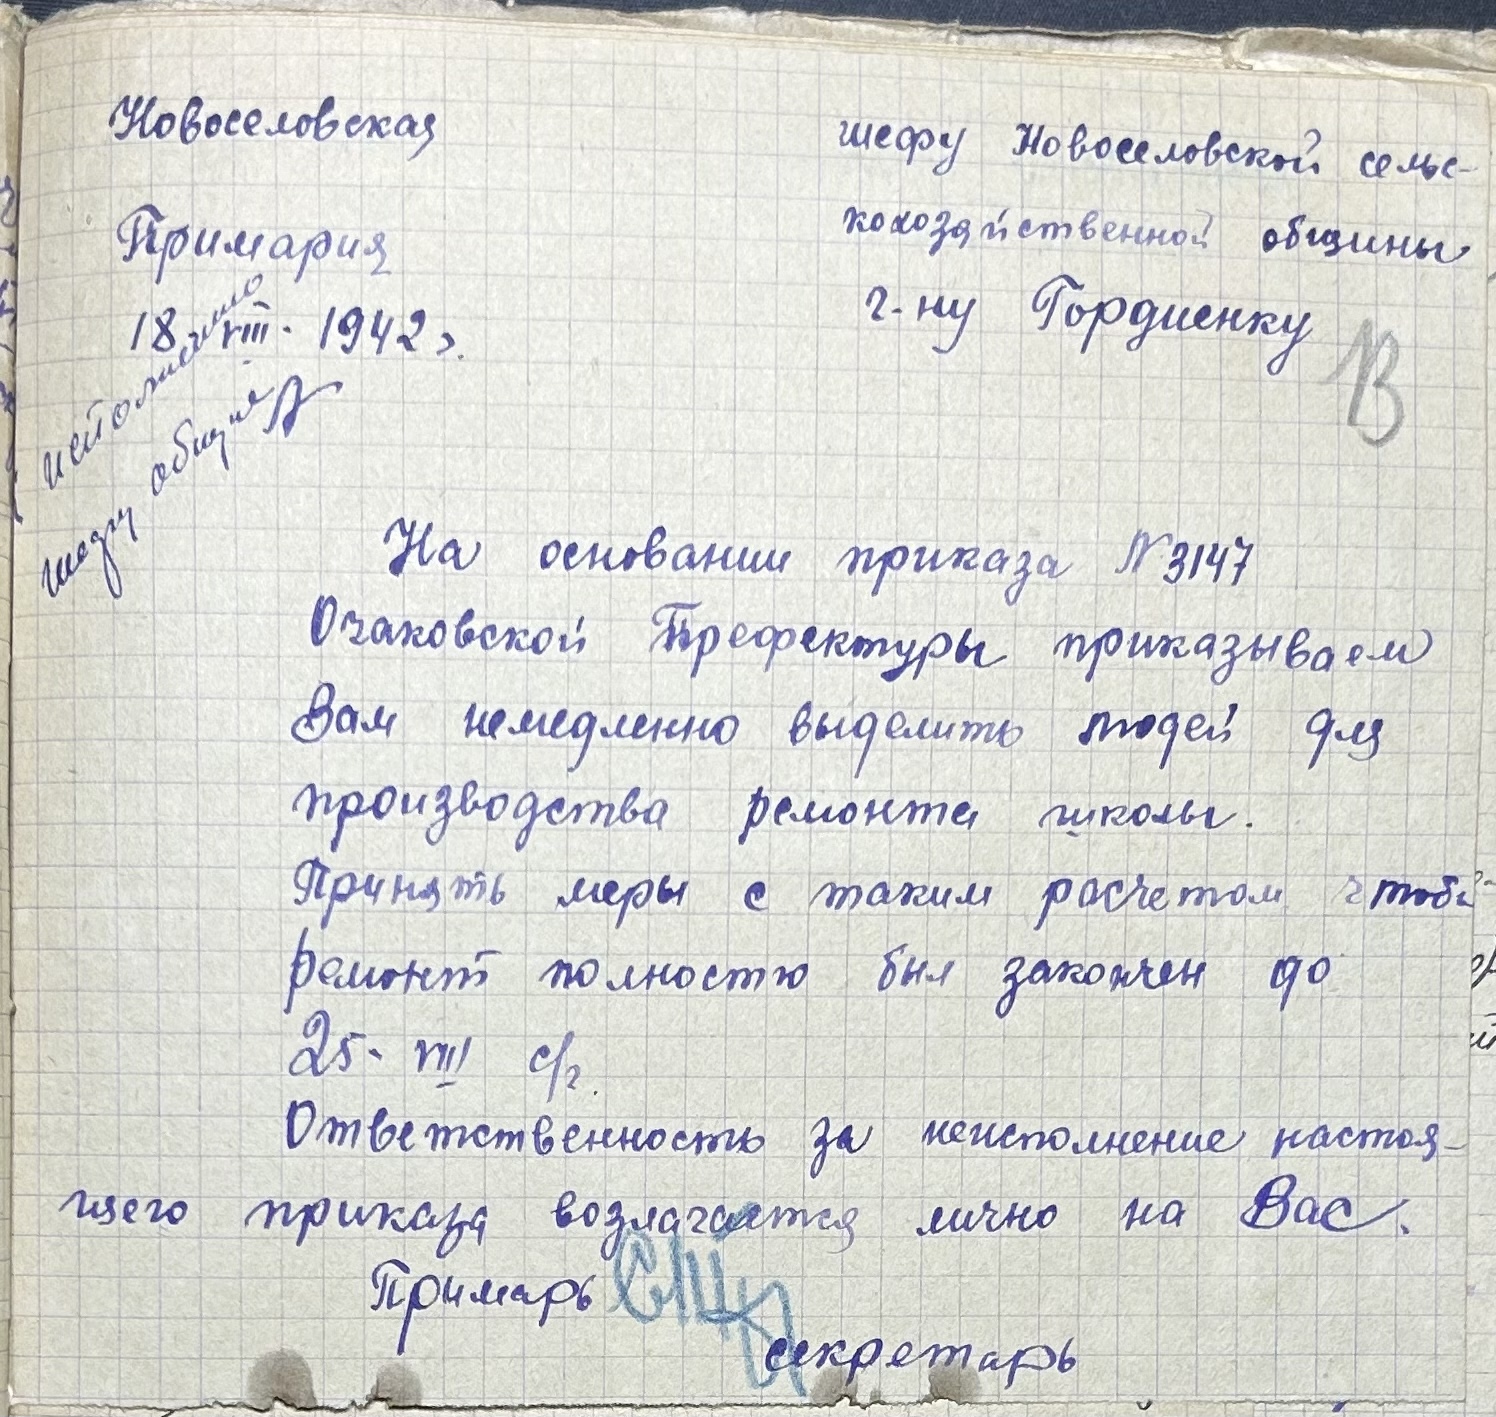 Новоселовская
Примария
18. VIII. 1942 г.
исполнено
шефу общины
шефу Новоселовской сельс-
кохозяйственной общины
г-ну Гордиенку
В
На основании приказа N 3147
Очаковской Префектуры приказываем
Вам немедленно выделить людей для
производства ремонта школы.
Принять меры с таким расчетом чтобы
ремонт полностью был закончен до
25. VIII с/г.
Ответственность за неисполнение настоя-
щего приказа возлагается лично на Вас.
Примарь
секретарь